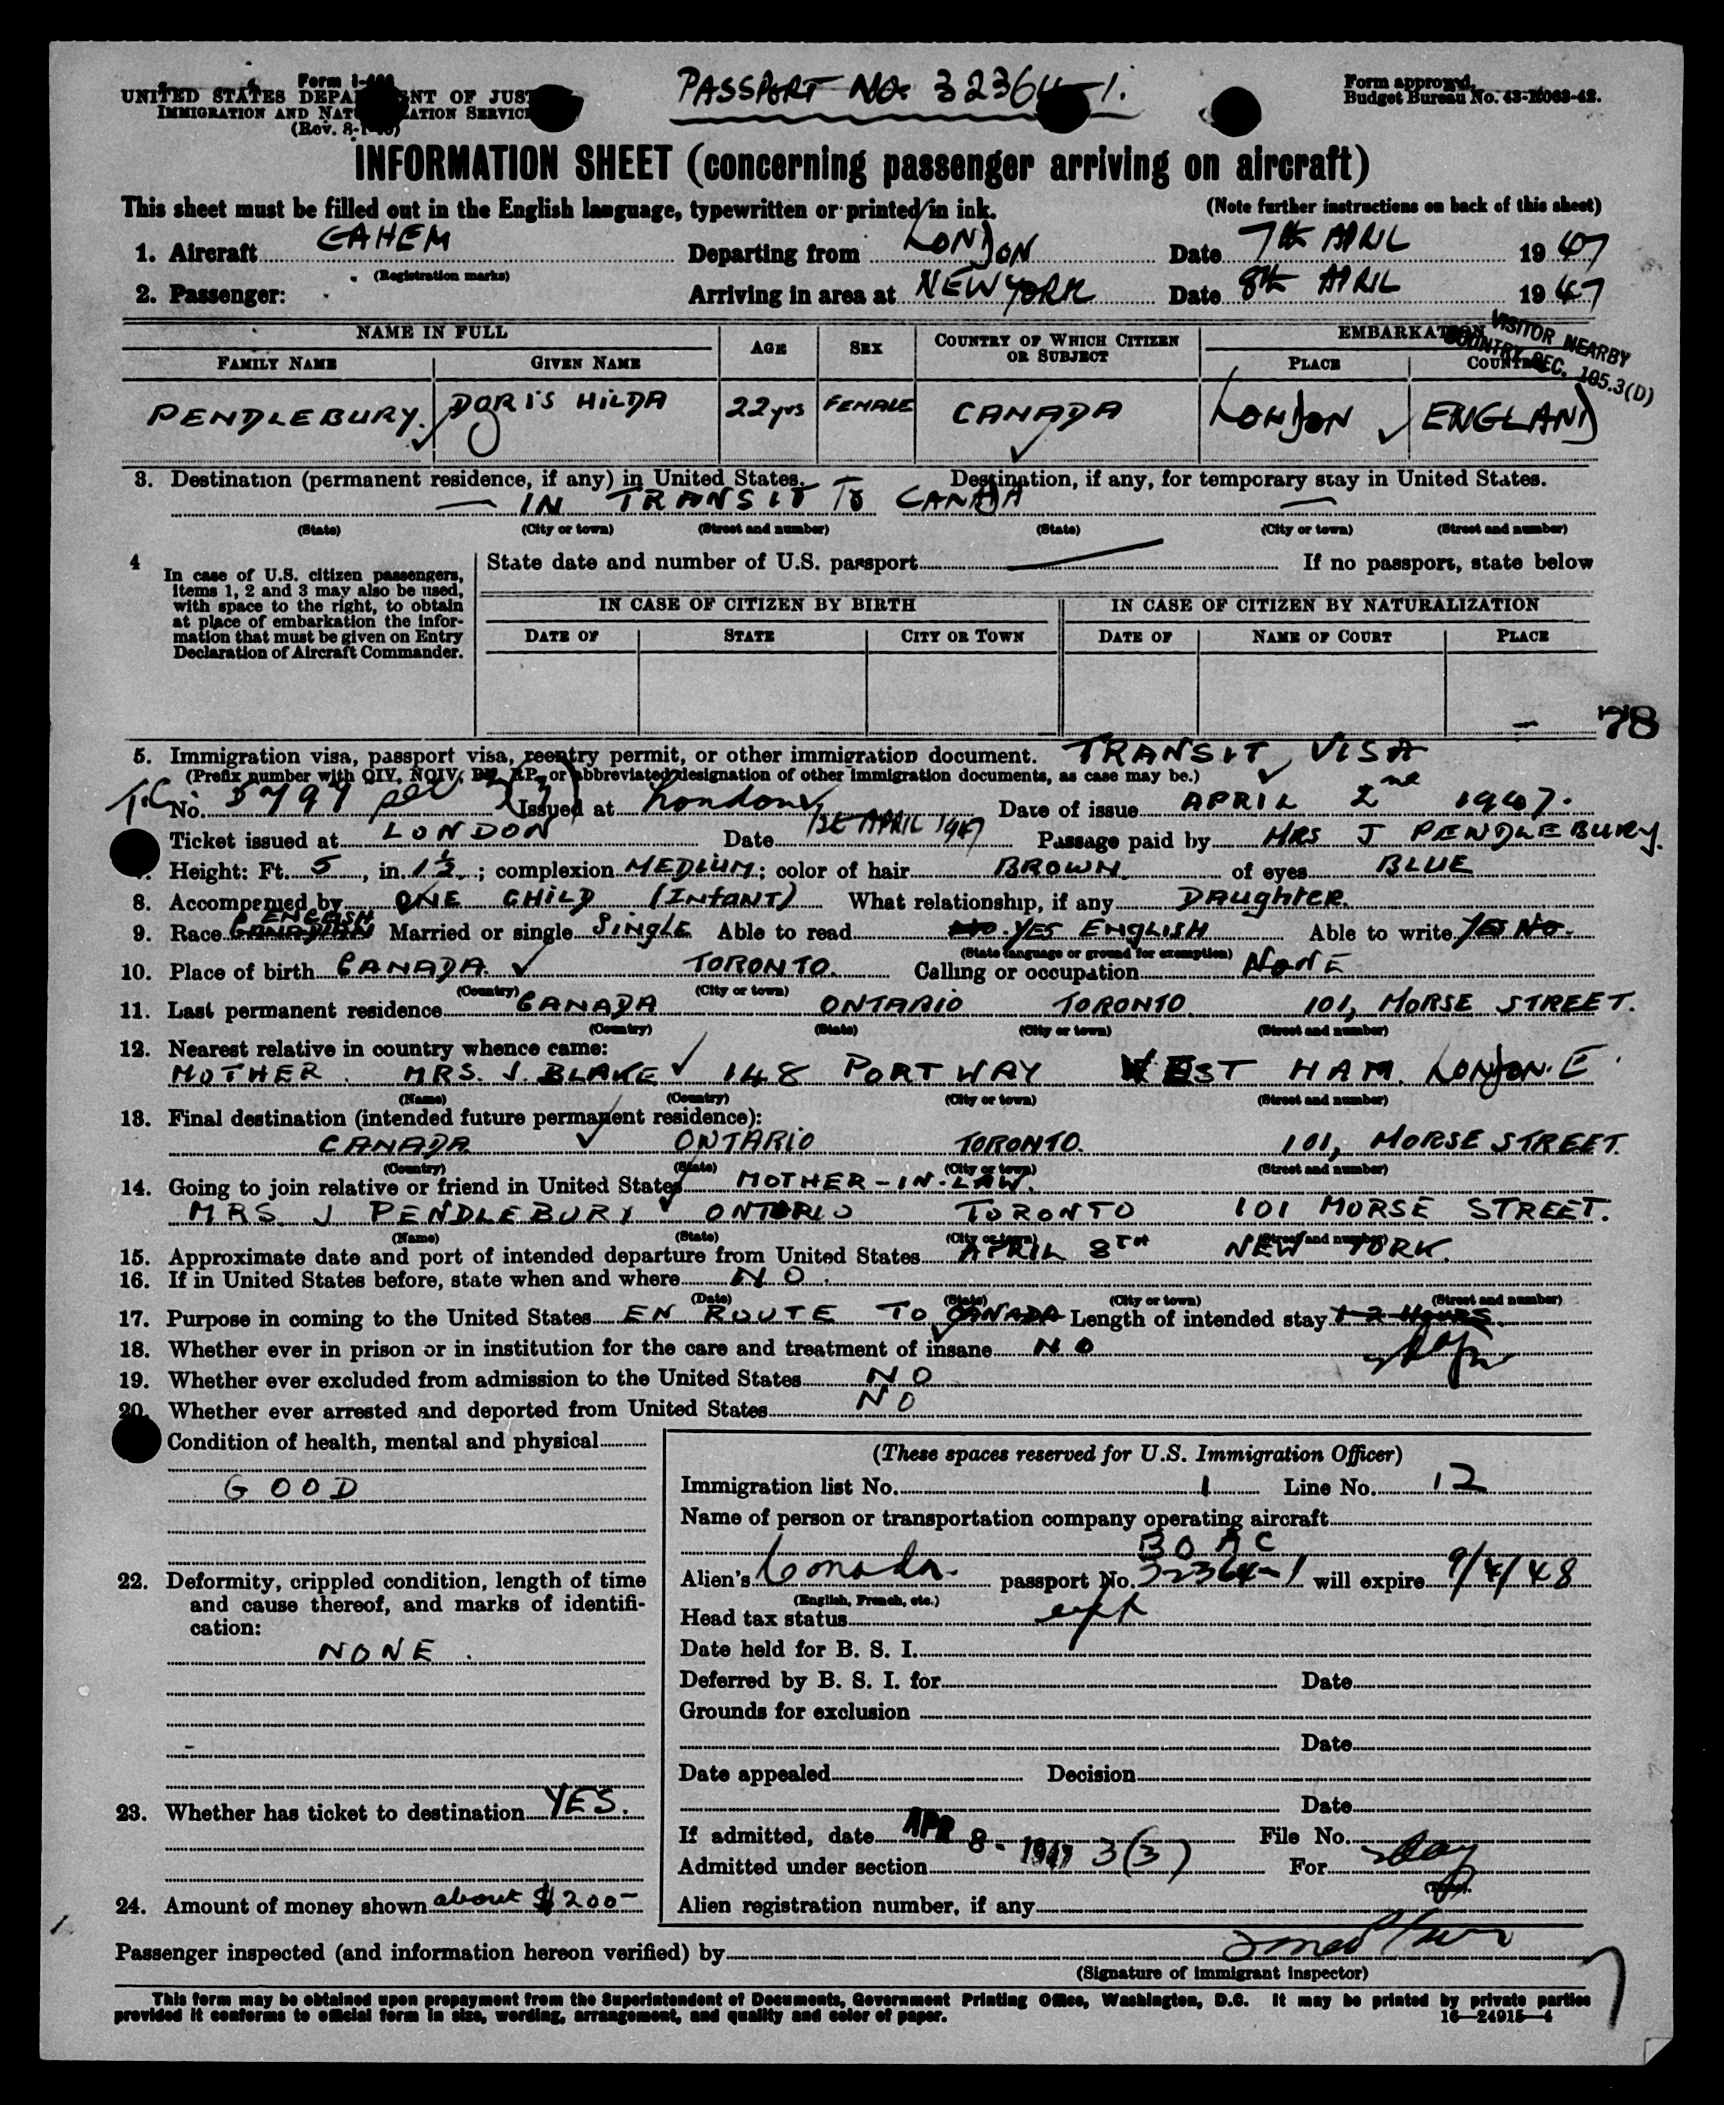 Form I-466
UNITED STATES DEPARTMENT OF JUSTICE
IMMIGRATION AND NATURALIZATION SERVICE
(Rev. 8-1-45)
PASSPORT NO. 32364-1.
Form approved.
Budget Bureau No. 43-R063-42.
INFORMATION SHEET (concerning passenger arriving on aircraft)
This sheet must be filled out in the English language, typewritten or printed in ink. (Note further instructions on back of this sheet)
1. Aircraft GAHEM Departing from LONDON Date 7th APRIL 1947
(Registration marks)
2. Passenger: Arriving in area at NEW YORK Date 8th APRIL 1947
VISITOR NEARBY
COUNTRY SEC. 105.3(D)
NAME IN FULL AGE SEX COUNTRY OF WHICH CITIZEN OR SUBJECT EMBARKATION
FAMILY NAME GIVEN NAME PLACE COUNTRY
PENDLEBURY. DORIS HILDA 22yrs FEMALE CANADA LONDON ENGLAND
3. Destination (permanent residence, if any) in United States. Destination, if any, for temporary stay in United States.
— IN TRANSIT TO CANADA —
(State) (City or town) (Street and number) (State) (City or town) (Street and number)
4 In case of U.S. citizen passengers, items 1, 2 and 3 may also be used, with space to the right, to obtain at place of embarkation the information that must be given on Entry Declaration of Aircraft Commander.
State date and number of U.S. passport If no passport, state below
IN CASE OF CITIZEN BY BIRTH IN CASE OF CITIZEN BY NATURALIZATION
DATE OF STATE CITY OR TOWN DATE OF NAME OF COURT PLACE
78
5. Immigration visa, passport visa, reentry permit, or other immigration document. TRANSIT VISA
(Prefix number with QIV, NQIV, PV, RP, or abbreviated designation of other immigration documents, as case may be.)
T.C. No. Issued at London Date of issue APRIL 2nd 1947.
Ticket issued at LONDON Date 1st APRIL 1947 Passage paid by MRS J PENDLEBURY.
7. Height: Ft. 5, in. 1½; complexion MEDIUM; color of hair BROWN of eyes BLUE
8. Accompanied by ONE CHILD (INFANT) What relationship, if any Daughter.
9. Race CANADIAN ENGLISH Married or single Single Able to read NO. YES ENGLISH Able to write YES NO.
(State language or ground for exemption)
10. Place of birth CANADA TORONTO. Calling or occupation NONE
(Country) (City or town)
11. Last permanent residence CANADA ONTARIO TORONTO 101, MORSE STREET.
(Country) (State) (City or town) (Street and number)
12. Nearest relative in country whence came:
MOTHER. MRS. J. BLAKE 148 PORTWAY WEST HAM. LONDON. E.
(Name) (Country) (City or town) (Street and number)
13. Final destination (intended future permanent residence):
CANADA ONTARIO TORONTO. 101, MORSE STREET.
(Country) (State) (City or town) (Street and number)
14. Going to join relative or friend in United States MOTHER-IN-LAW.
MRS J PENDLEBURY ONTARIO TORONTO 101 MORSE STREET.
(Name) (State) (City or town) (Street and number)
15. Approximate date and port of intended departure from United States APRIL 8TH NEW YORK.
16. If in United States before, state when and where NO.
(Date) (State) (City or town) (Street and number)
17. Purpose in coming to the United States EN ROUTE TO CANADA Length of intended stay 1-2 HOURS.
18. Whether ever in prison or in institution for the care and treatment of insane NO
19. Whether ever excluded from admission to the United States NO
20. Whether ever arrested and deported from United States NO
Condition of health, mental and physical
GOOD
22. Deformity, crippled condition, length of time and cause thereof, and marks of identification:
NONE.
23. Whether has ticket to destination YES.
24. Amount of money shown about $200-
(These spaces reserved for U.S. Immigration Officer)
Immigration list No. 1 Line No. 12
Name of person or transportation company operating aircraft
BOAC
Alien's Canada passport No. 32364-1 will expire 9/4/48
(English, French, etc.)
Head tax status
Date held for B. S. I.
Deferred by B. S. I. for Date
Grounds for exclusion
Date
Date appealed Decision
Date
If admitted, date APR 8-1947 File No.
Admitted under section 3(3) For
Alien registration number, if any
Passenger inspected (and information hereon verified) by
(Signature of immigrant inspector)
This form may be obtained upon prepayment from the Superintendent of Documents, Government Printing Office, Washington, D.C. It may be printed by private parties
provided it conforms to official form in size, wording, arrangement, and quality and color of paper. 16—24915—4